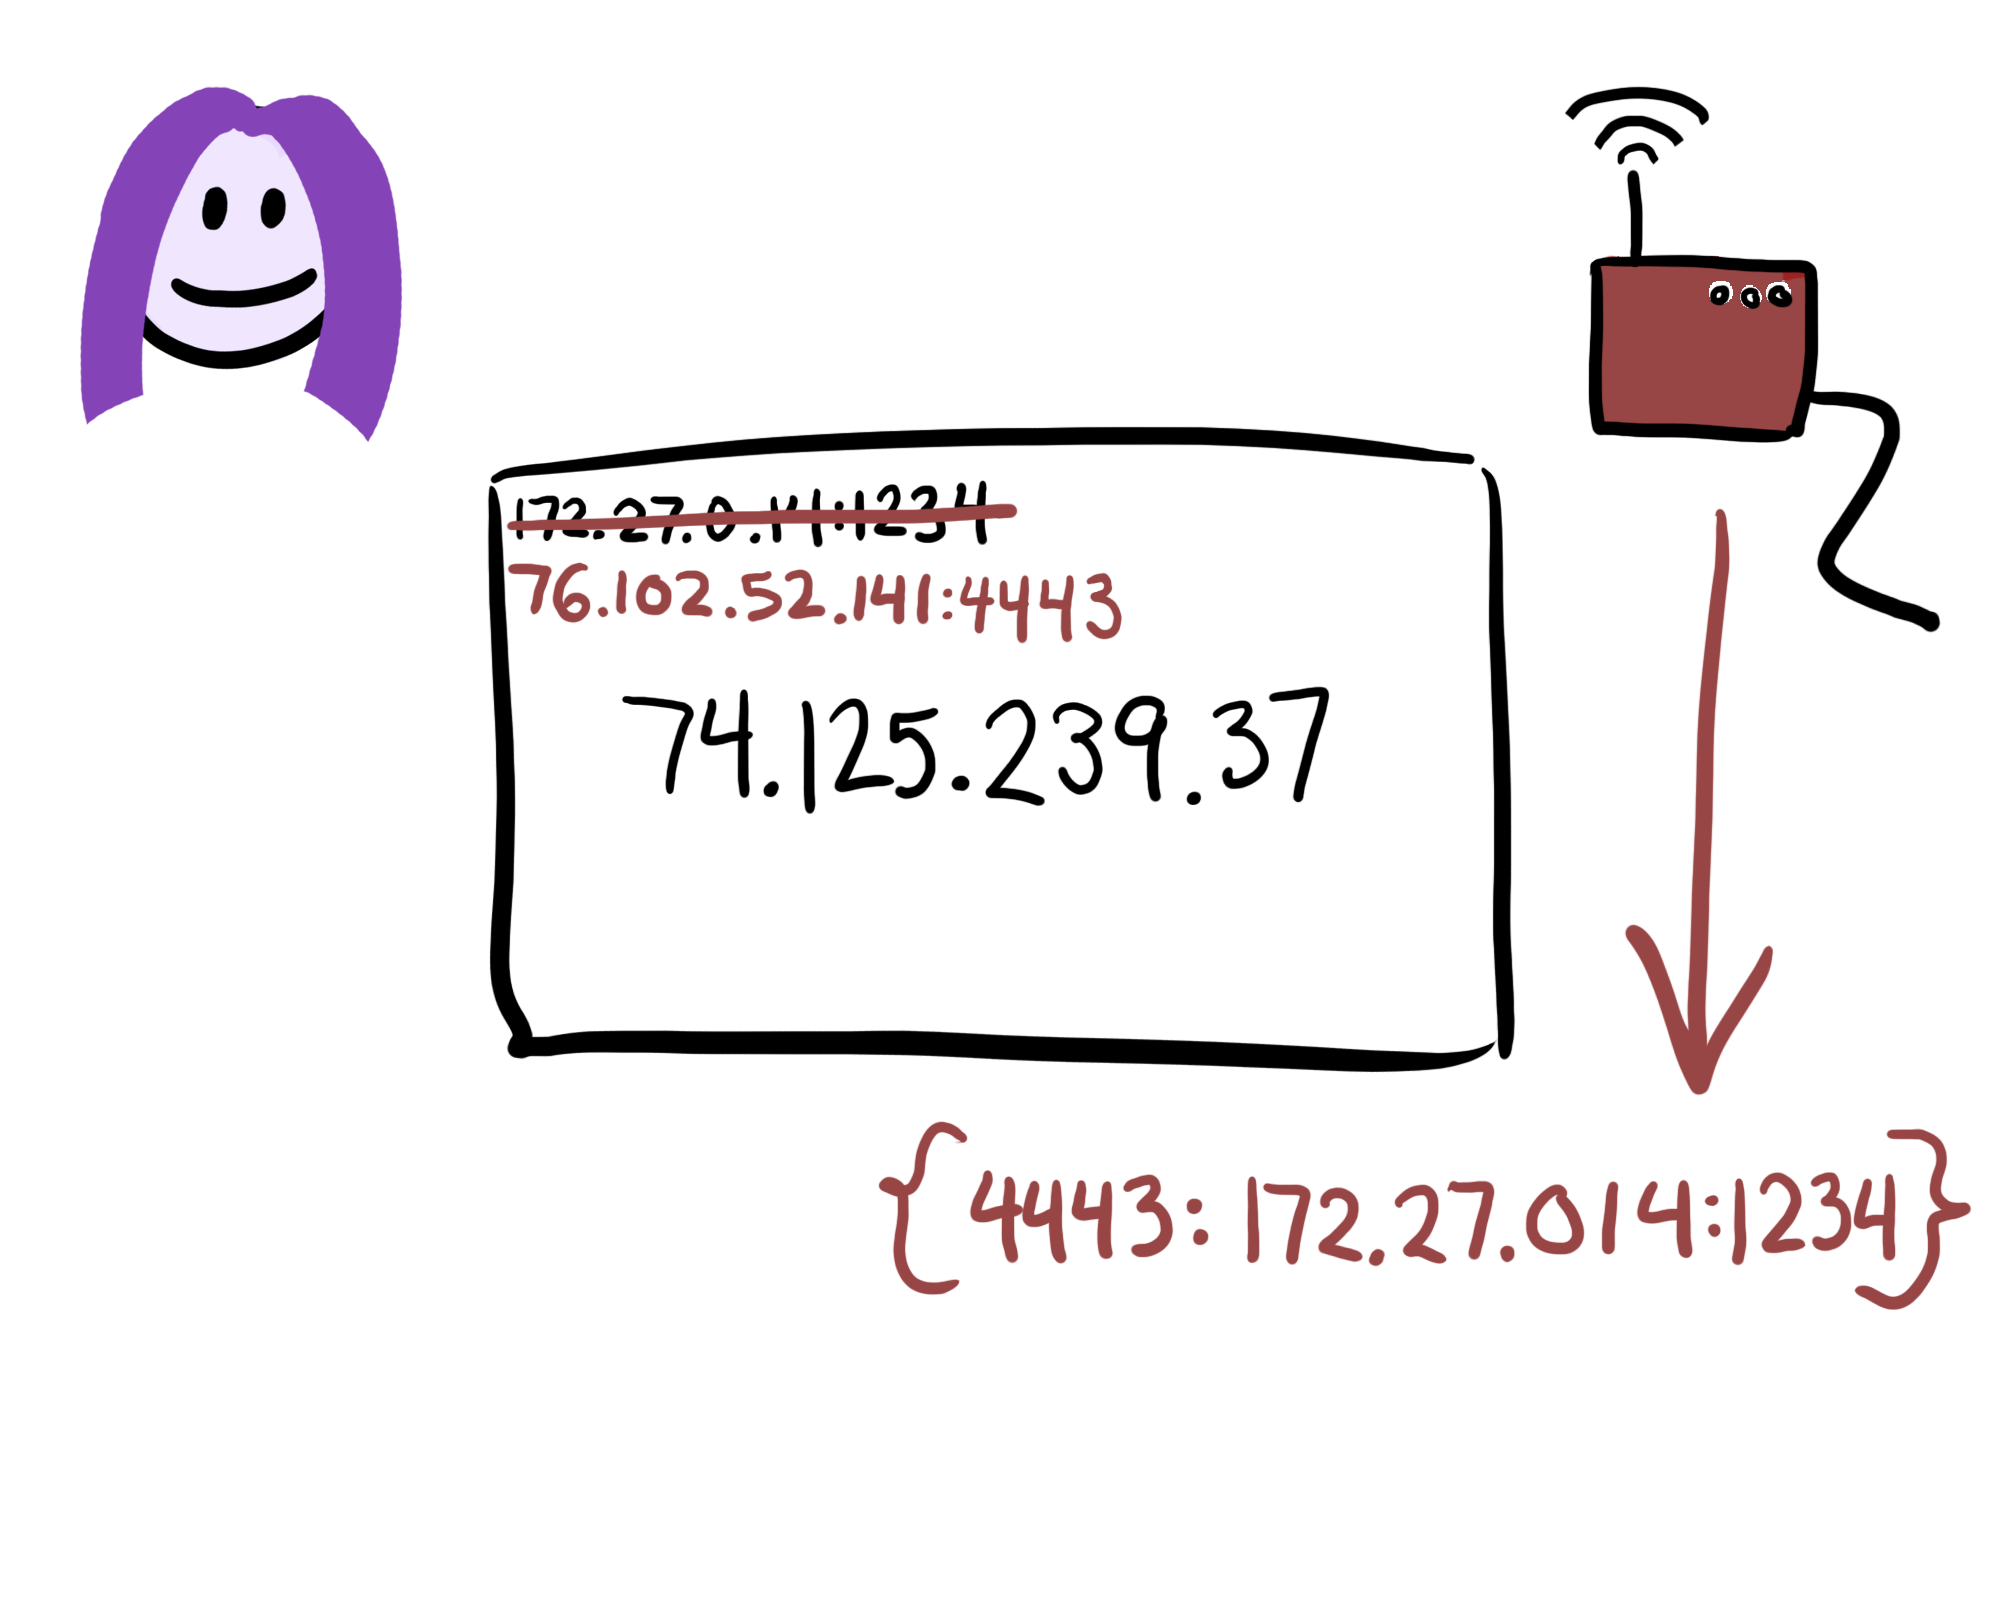 172.27.0.141:1234
76.102.52.141:4443
74.125.239.37
{4443:172.27.014:1234}